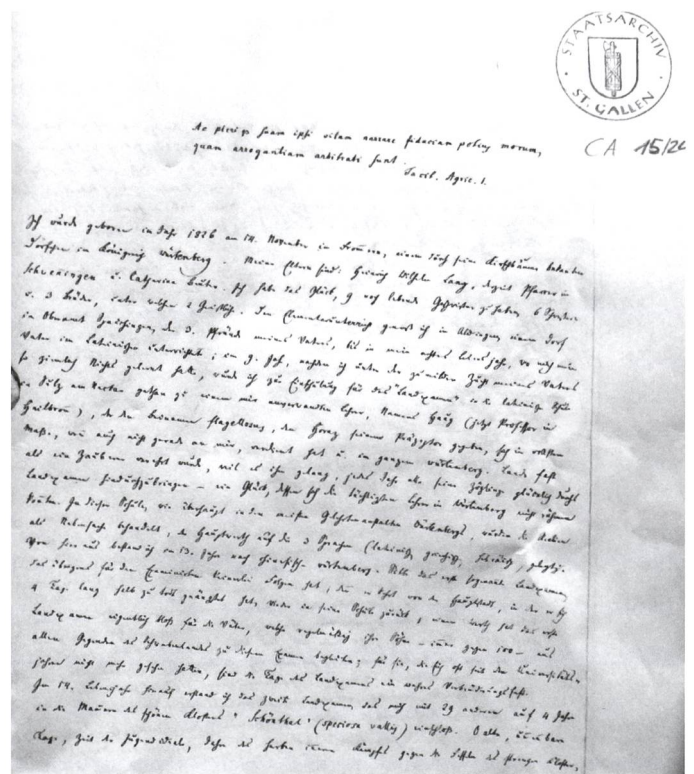 STAATSARCHIV
ST. GALLEN
CA 15/2
Ac plerique suam ipsi vitam narrare fiduciam potius morum,
quam arrogantiam arbitrati sunt.
Tacit. Agric. 1.
Ich wurde geboren im Jahr 1826 am 14. November in Frommern, einem durch seine
Dörfchen im Königreich Würtemberg. Meine Eltern sind: Heinrich Wilhelm Lang, Pfarrer in
Schwenningen u. Catharine. Ich habe das Glück, 9 noch lebende Geschwister zu haben, 6 Schwestern
u. 3 Brüder, unter welchen 2 Geistliche. Den Elementarunterricht genoß ich in Aldingen, einem Dorf
im Oberamt Spaichingen, der 3. Pfarrei meines Vaters, bis in mein achtes Lebensjahr, wo mich mein
Vater im Lateinischen unterrichtete; im 9. Jahr, nachdem ich unter der zu milden Zucht meines Vaters
so ziemlich Nichts gelernt hatte, wurde ich zur für das "Landexamen" in die lateinische Schule
in Sulz am Neckar gethan zu einem mir anverwandten Lehrer, Namens (jetzt Professor in
Heilbronn), der den Beinamen flagellosus, den Horaz seinem Präzeptor gegeben, sich in vollstem
Maße, wenn auch nicht gerade an mir, verdient hat u. im ganzen würtemberg. Lande fast
als ein Zauberer verehrt wurde, weil es ihm gelang, jedes Jahr alle seine Zöglinge glücklich durchs
Landexamen hindurchzubringen – ein Glück, dessen sich die tüchtigsten Lehrer in Würtemberg nicht rühmen
konnten. In dieser Schule, wie überhaupt in den meisten Gelehrtenanstalten Würtembergs, wurden die Realien
als Nebensach behandelt, der Hauptwerth auf die 3 Sprachen (lateinisch, griechisch, hebräisch) gelegt.
Von hier aus bestand ich im 13. Jahr nach würtemberg. Sitte das erste sogenannte Landexamen,
das übrigens für den Examinirten keinerlei Folgen hat, der von der Hauptstadt, in der er sich
4 Tage lang halb zu todt geängstet hat, wieder in seine Schule zurück; einen Werth hat das erste
Landexamen eigentlich bloß für die Väter, welche regelmäßig ihre Söhne – immer gegen 100 – aus
allen Gegenden des Schwabenlandes zu diesem Examen begleiten; für sie, die sich oft seit den Universitäts-
jahren nicht mehr gesehen hatten, sind die Tage des Landexamens ein wahres Verbrüderungsfest.
Im 14. Lebensjahr hierauf bestand ich das zweite Landexamen, das mich mit 29 anderen auf 4 Jahre
in die Mauern des schönen Klosters "Schönthal" (speciosa vallis) einschloß. O alte,
Tage, Zeit der Jugendideale, des Kampfes gegen die Fesseln des strengen Klosters,